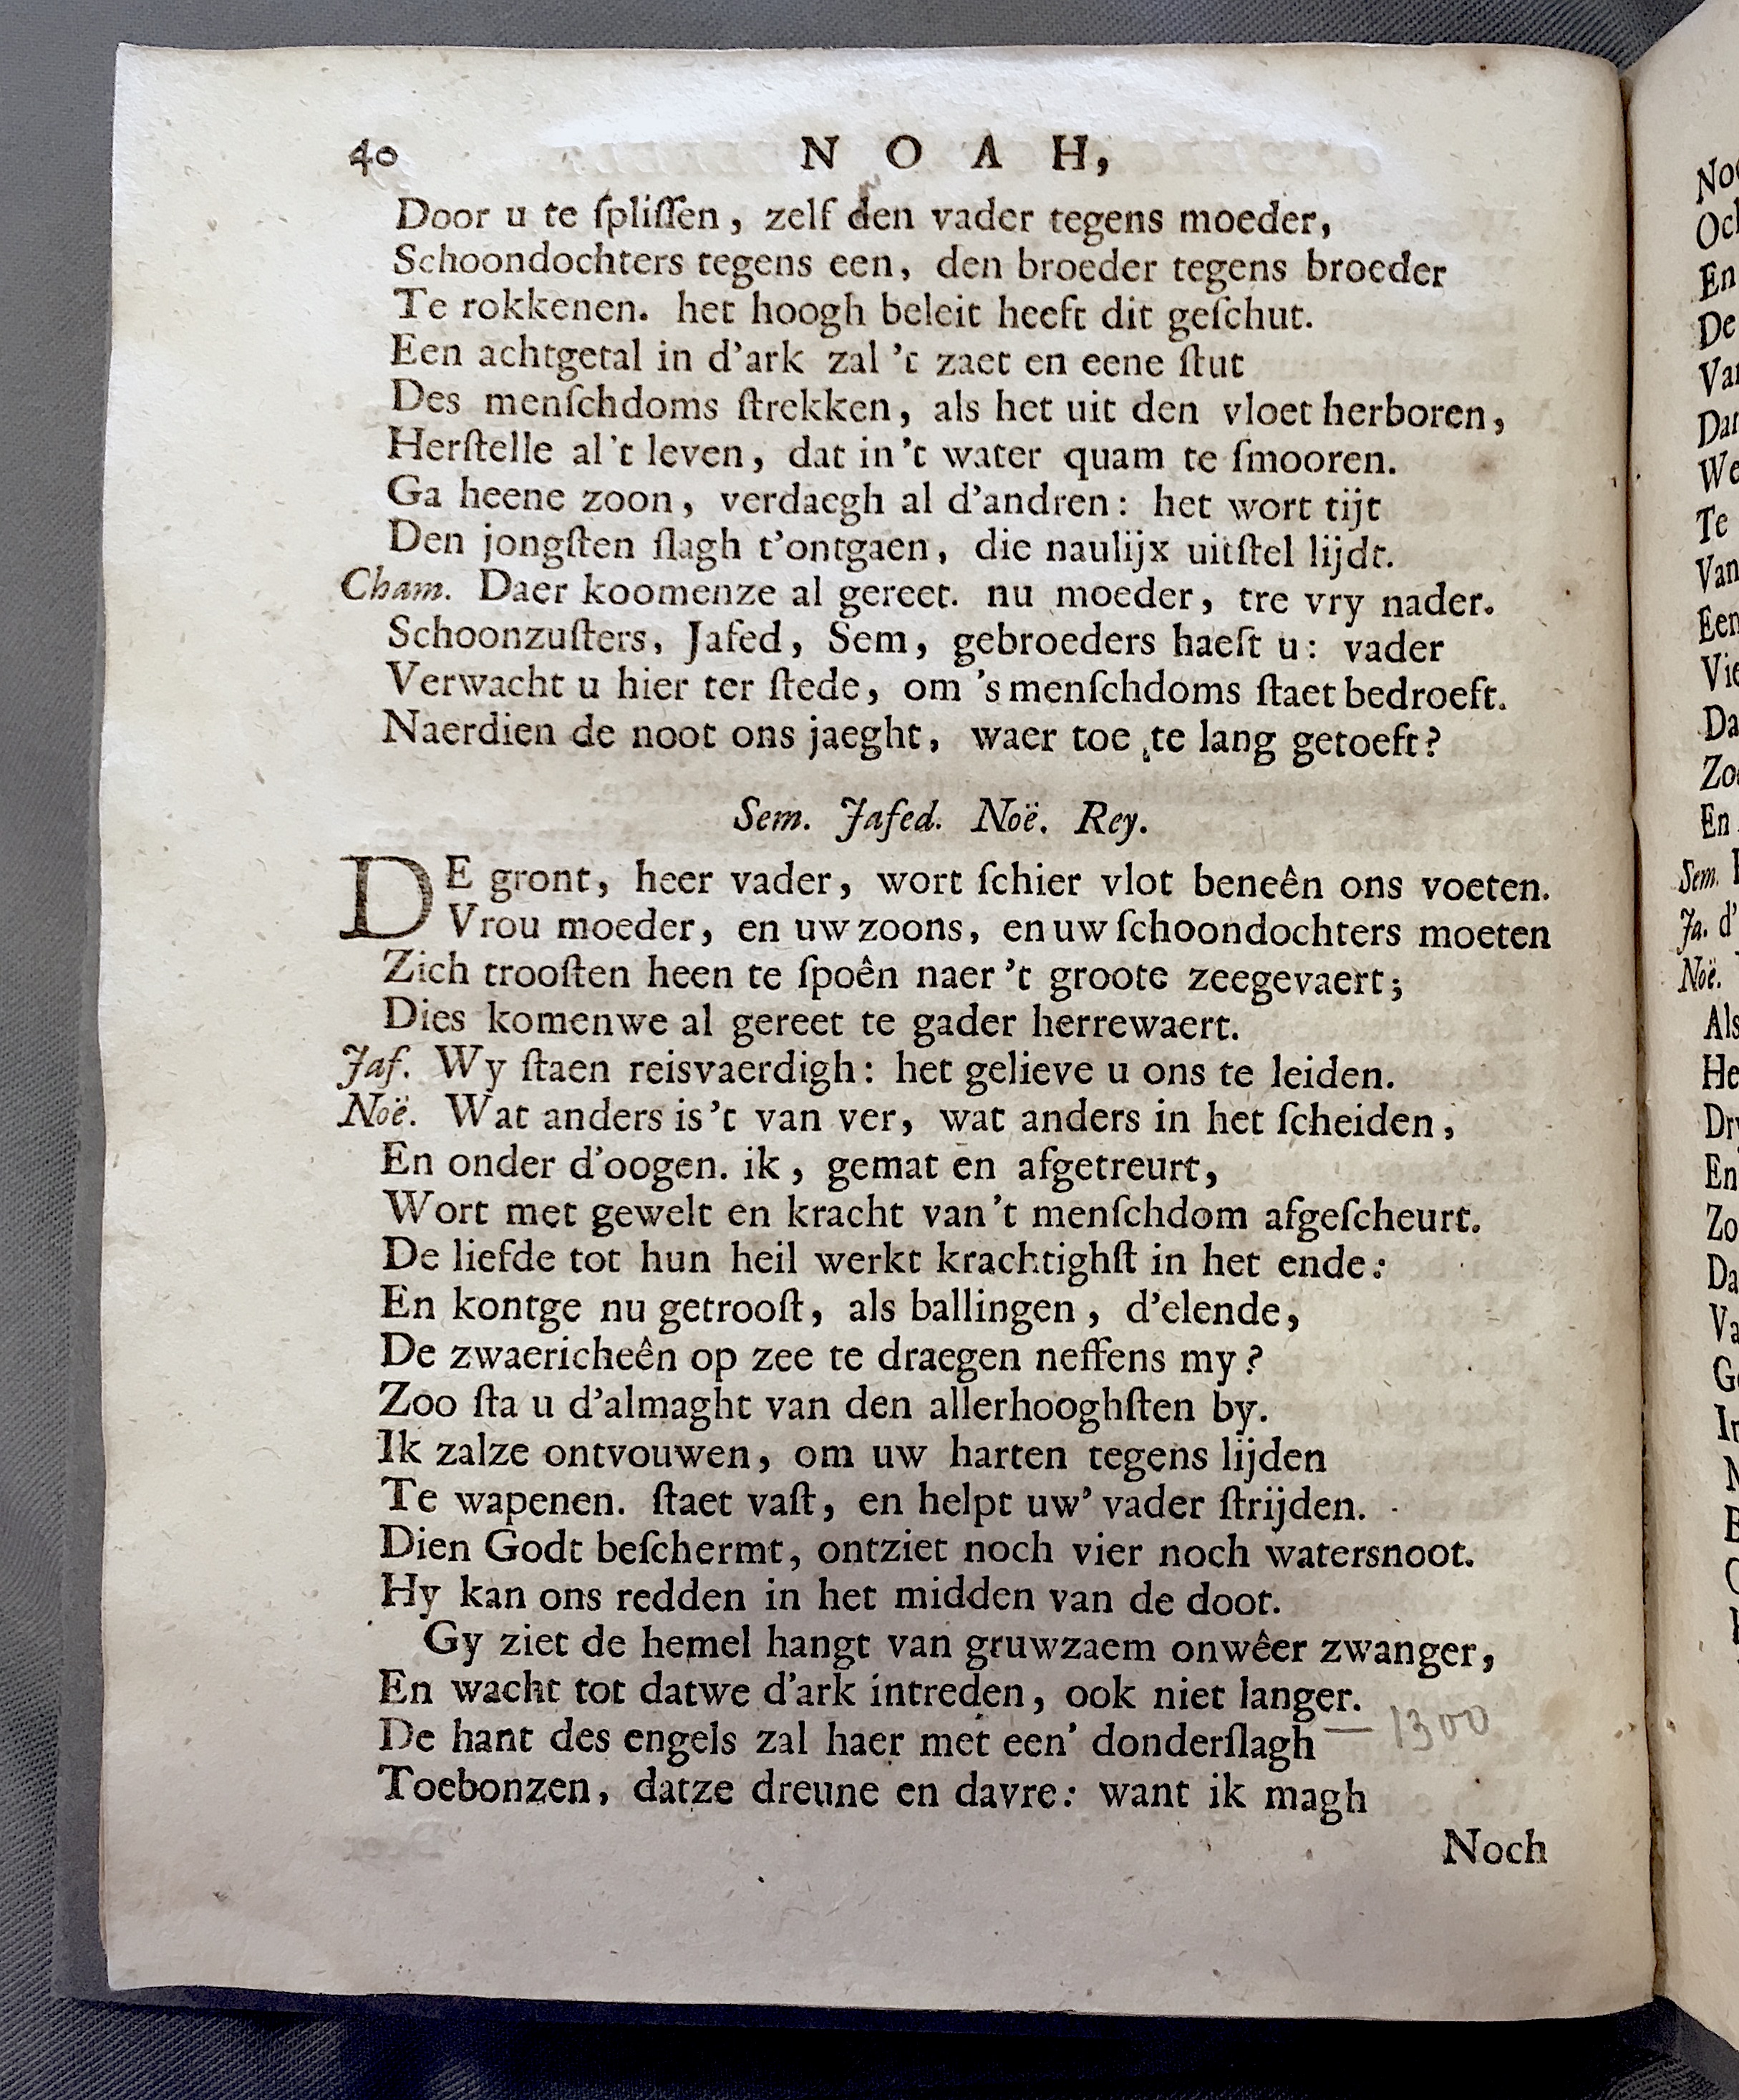 40 NOAH,
Door u te ſpliſſen, zelf den vader tegens moeder,
Schoondochters tegens een, den broeder tegens broeder
Te rokkenen. het hoogh beleit heeft dit geſchut.
Een achtgetal in d'ark zal 't zaet en eene ſtut
Des menſchdoms ſtrekken, als het uit den vloet herboren,
Herſtelle al 't leven, dat in 't water quam te ſmooren.
Ga heene zoon, verdaegh al d'andren: het wort tijt
Den jongſten ſlagh t'ontgaen, die naulijx uitſtel lijdt.
Cham. Daer koomenze al gereet. nu moeder, tre vry nader.
Schoonzuſters, Jafed, Sem, gebroeders haeſt u: vader
Verwacht u hier ter ſtede, om 's menſchdoms ſtaet bedroeft.
Naerdien de noot ons jaeght, waer toe te lang getoeft?
Sem. Jafed. Noë. Rey.
DE gront, heer vader, wort ſchier vlot beneên ons voeten.
Vrou moeder, en uw zoons, en uw ſchoondochters moeten
Zich trooſten heen te ſpoên naer 't groote zeegevaert;
Dies komenwe al gereet te gader herrewaert.
Jaf. Wy ſtaen reisvaerdigh: het gelieve u ons te leiden.
Noë. Wat anders is 't van ver, wat anders in het ſcheiden,
En onder d'oogen. ik, gemat en afgetreurt,
Wort met gewelt en kracht van 't menſchdom afgeſcheurt.
De liefde tot hun heil werkt krachtighſt in het ende:
En kontge nu getrooſt, als ballingen, d'elende,
De zwaericheên op zee te draegen neffens my?
Zoo ſta u d'almaght van den allerhooghſten by.
Ik zalze ontvouwen, om uw harten tegens lijden
Te wapenen. ſtaet vaſt, en helpt uw' vader ſtrijden.
Dien Godt beſchermt, ontziet noch vier noch watersnoot.
Hy kan ons redden in het midden van de doot.
Gy ziet de hemel hangt van gruwzaem onwêer zwanger,
En wacht tot datwe d'ark intreden, ook niet langer.
De hant des engels zal haer met een' donderſlagh — 1300
Toebonzen, datze dreune en davre: want ik magh
Noch